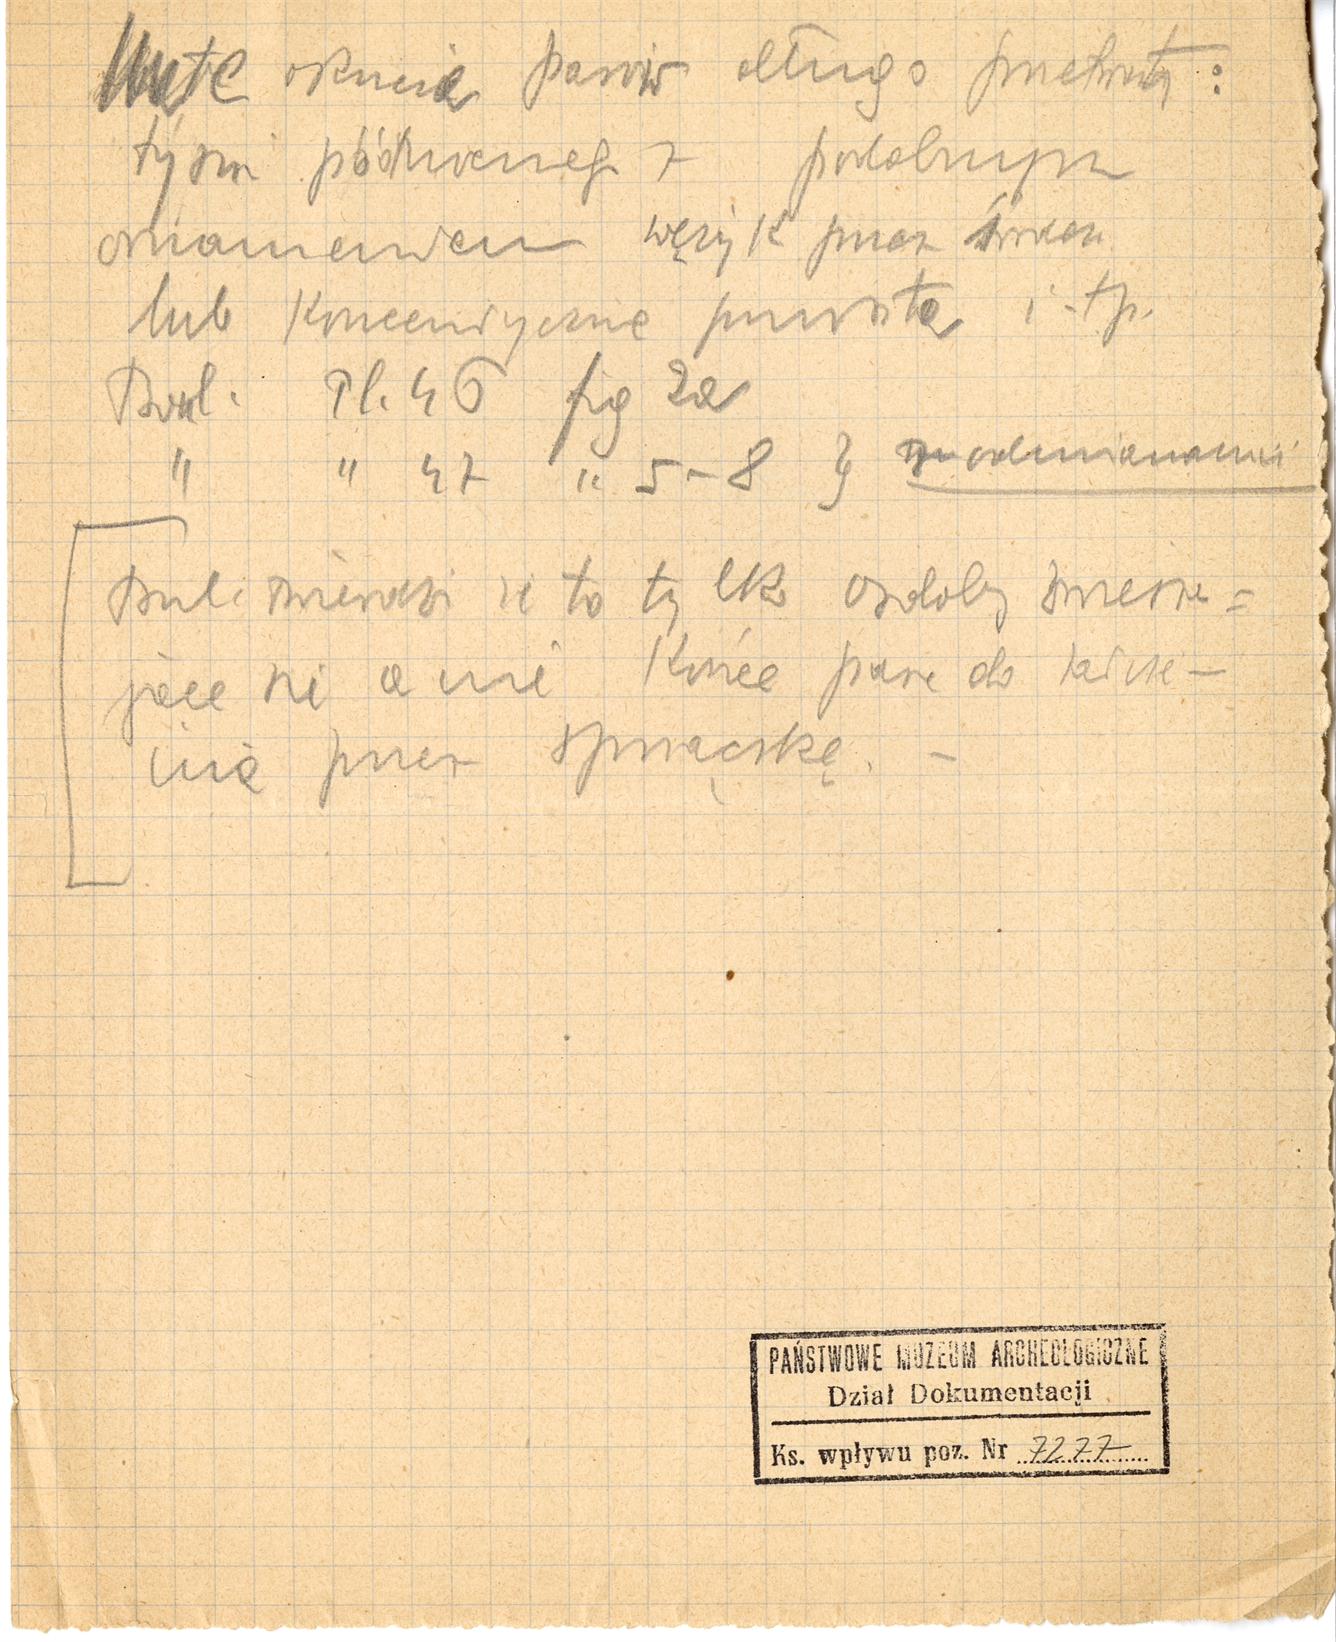 okucia pasów długo przetrwały :
typu późnorzymsk z podobnym
ornamentem wężyk przez środek
lub koncentryczne kółka i t.p.
Bul. Pl. 46 fig 2a
" " 47 " 5-8 } z odmianami
Bul. twierdzi że to tylko ozdoby zwiesza=
jące się a nie końce pasa do zaciś-
inia przez sprzączkę. -
PAŃSTWOWE MUZEUM ARCHEOLOGICZNE
Dział Dokumentacji
Ks. wpływu poz. Nr 7277